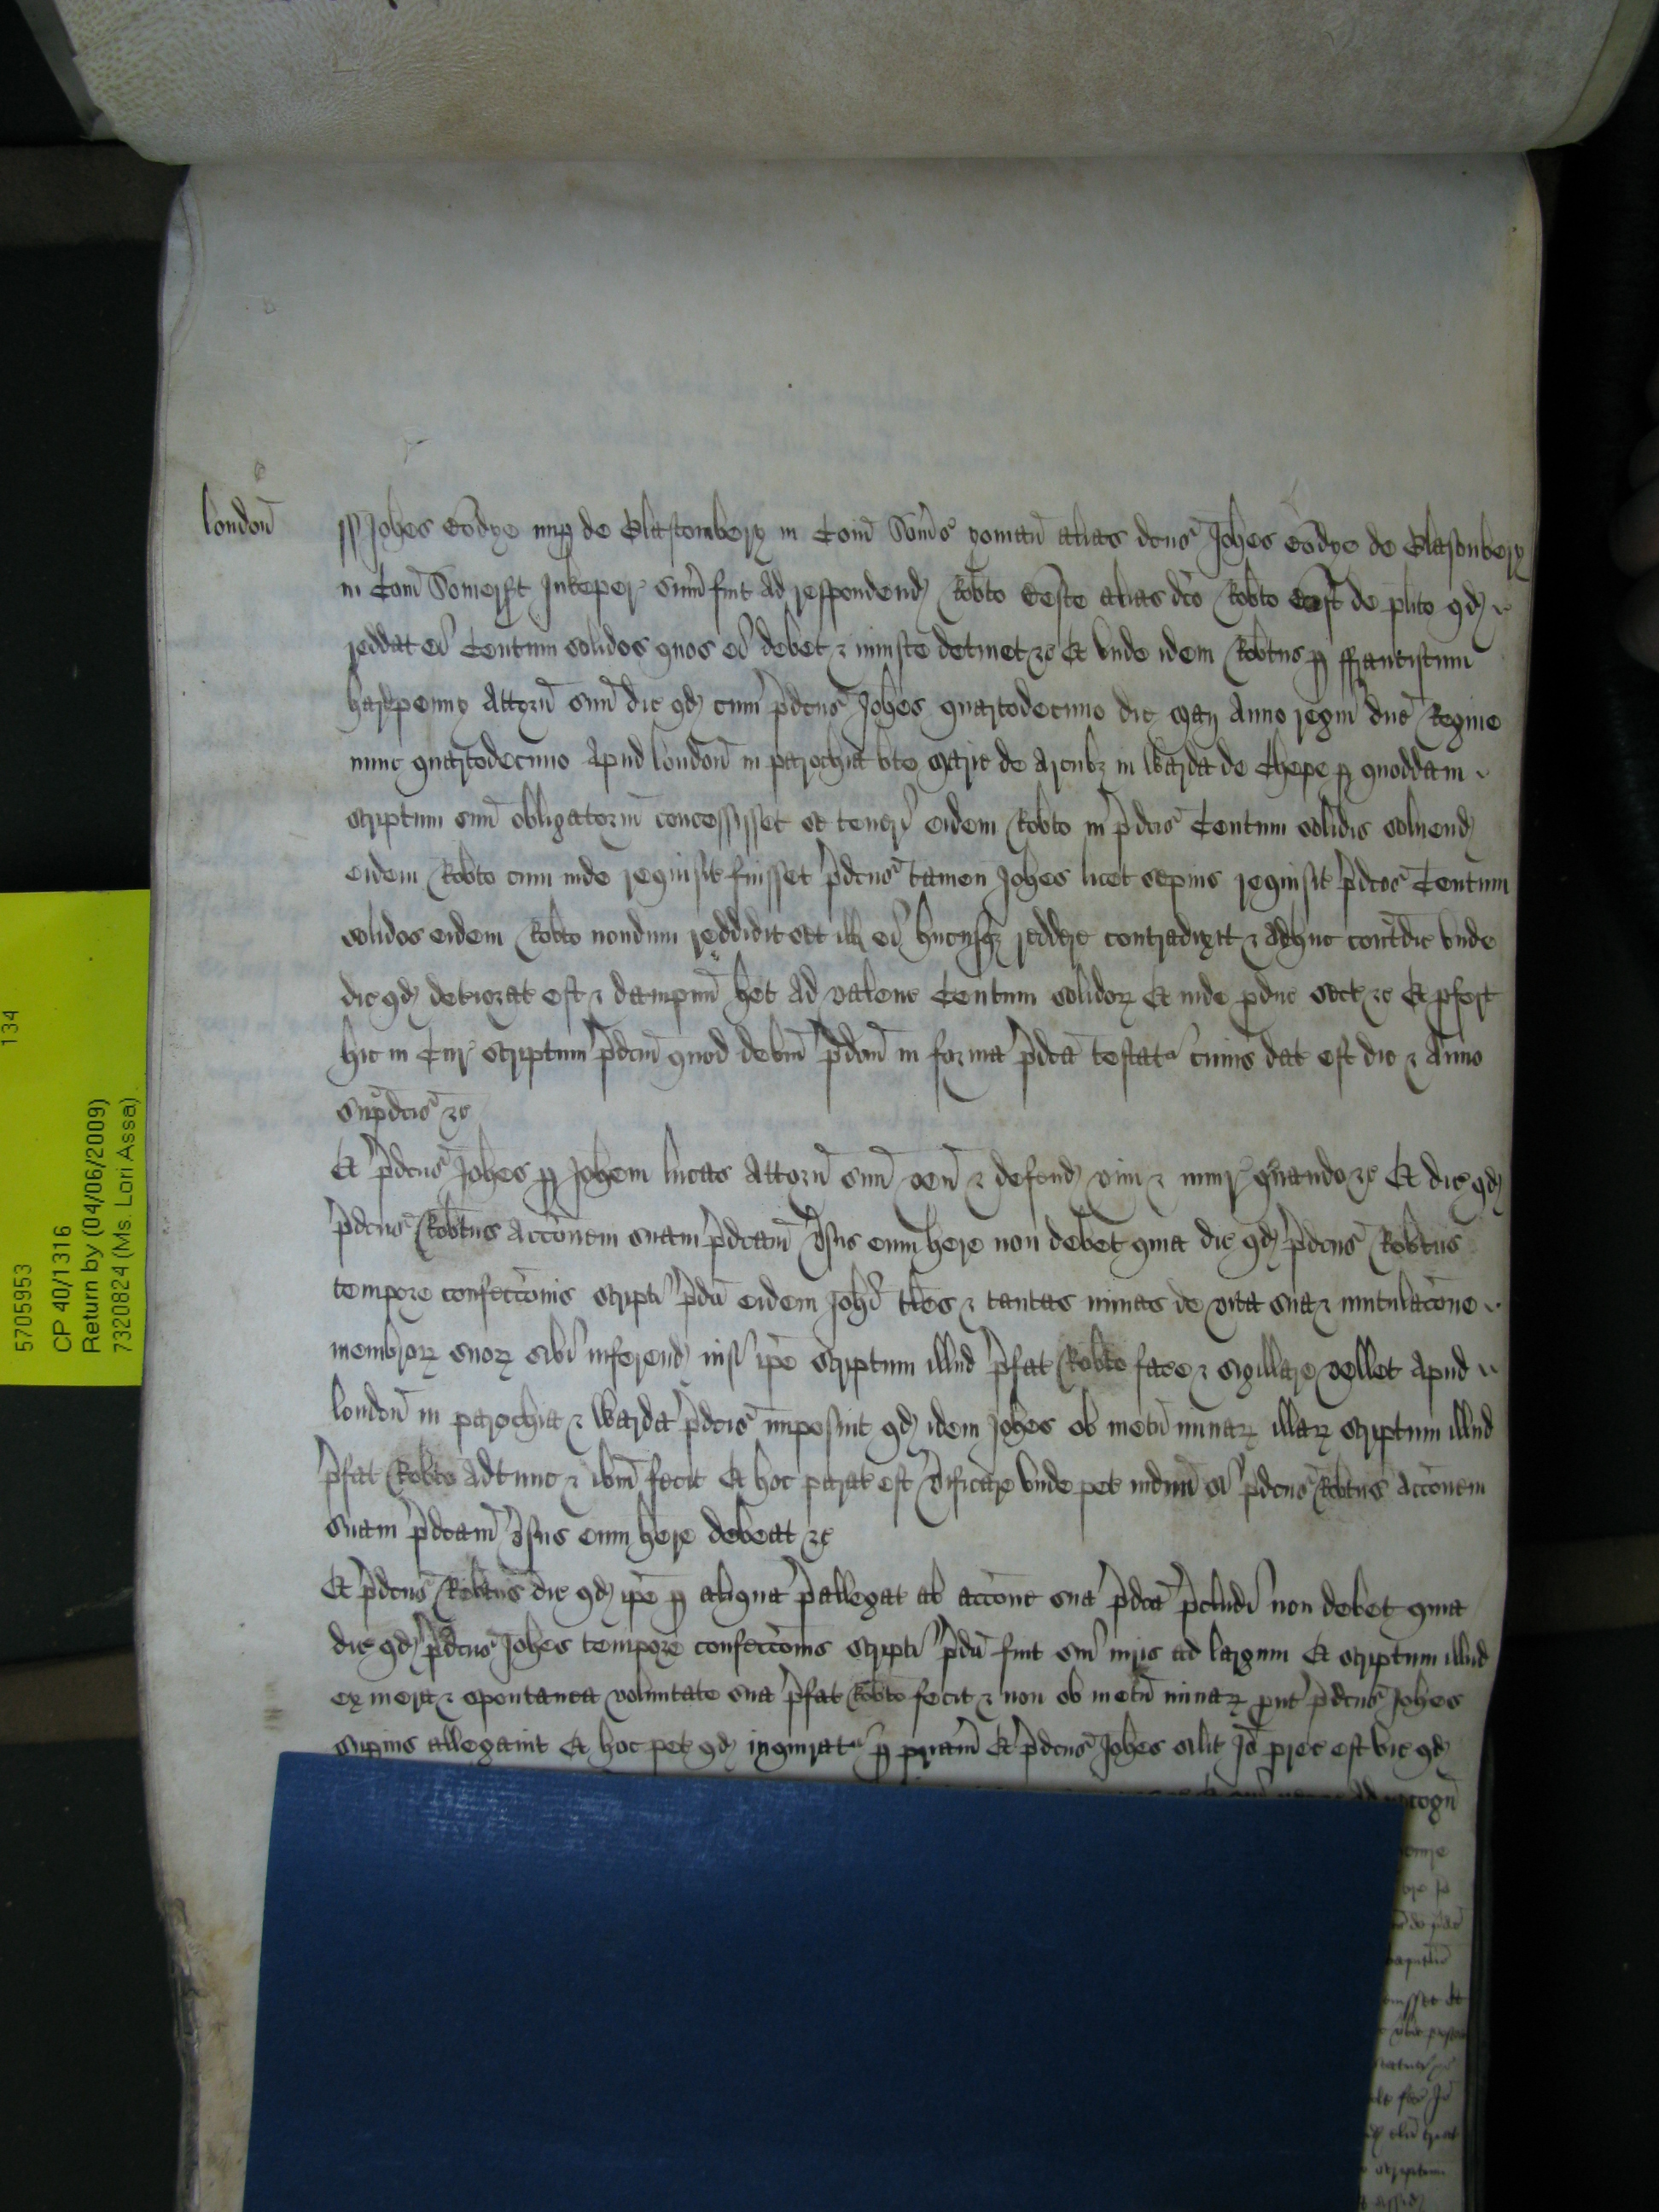 5705953 134
CP 40/1316
Return by (04/06/2009)
7320824 (Ms. Lori Assa)
londoñ
Johes nup de Glastonbery in Com̃ Som̃s yomañ alias dcus Johes de Glasonbery
in Com̃ Somerst Inkeper sum̃ fuit ad respondend Robto alias dco Robto de plito qd
reddat ei Centum solidos quos ei debet & iniuste detinet &c Et unde idem Robtus p ffranciscum
harepenny Attorñ suũ dic qd cum p̃dcus Johes quartodecimo die Maij Anno regni dñe Regine
nunc quartodecimo Apud londoñ in parochia bte Marie de Arcubz in Warda de Chepe p quoddam
scriptum suũ obligatoriũ concessisset se teneri eidem Robto in p̃dcis Centum solidis soluend
eidem Robto cum inde requisit fuisset p̃dcus tamen Johes licet sepius requisit p̃dcos Centum
solidos eidem Robto nondum reddidit set ill ei hucusqz reddere contradixit & adhuc contdic unde
dic qd deteriorat est & dampnũ het ad valenc Centum solidorz Et inde pduc sect &c Et pfert
hic in Cur scriptum p̃dcm̃ quod debitũ p̃dcm̃ in forma p̃dca testat cuius dat est die & Anno
sup̃dcis &c
Et p̃dcus Johes p Johem lucas Attorñ suũ veñ & defend vim & iniur quando &c Et dic qd
p̃dcus Robtus acc̃onem suam p̃dcam̃ vsus eum here non debet quia dic qd p̃dcus Robtus
tempore confecc̃onis scripti p̃dci eidem Johi tles & tantas minas de vita sua & mutulac̃one
membrorz suorz sibi inferend nisi ip̃e scriptum illud p̃fat Robto facẽ & sigillare vellet apud
londoñ in parochia & Warda p̃dcis imposuit qd idem Johes ob metũ minarz illarz scriptum illud
p̃fat Robto adtunc & ibm̃ fecit Et hoc parat est vificare unde pet iudiũ si p̃dcus Robtus acc̃onem
suam p̃dcam̃ vsus eum here debeat &c
Et p̃dcus Robtus dic qd ip̃e p aliqua p̃allegat ab acc̃one sua p̃dca p̃cludi non debet quia
dic qd p̃dcus Johes tempore confecc̃onis scripti p̃dci fuit sui iuris ad largum Et scriptum illud
ex mera & spontanea voluntate sua p̃fat Robto fecit & non ob metũ minarz put p̃dcus Johes
supius allegauit Et hoc pet qd inquirat p priam̃ Et p̃dcus Johes silit Io prec est vic qd